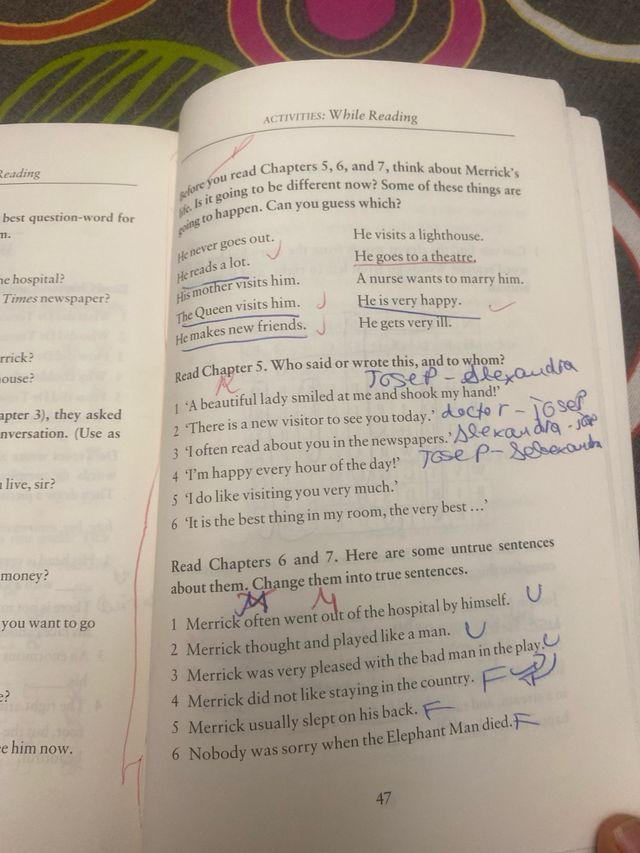 Reading
best question-word for
m.
he hospital?
Times newspaper?
rrick?
ouse?
apter 3), they asked
nversation. (Use as
live, sir?
money?
you want to go
e?
e him now.
ACTIVITIES: While Reading
Before you read Chapters 5, 6, and 7, think about Merrick's
life. Is it going to be different now? Some of these things are
going to happen. Can you guess which?
He never goes out.
He reads a lot.
His mother visits him.
The Queen visits him.
He makes new friends.
He visits a lighthouse.
He goes to a theatre.
A nurse wants to marry him.
He is very happy.
He gets very ill.
Read Chapter 5. Who said or wrote this, and to whom?
Josep - Alexandra
1 'A beautiful lady smiled at me and shook my hand!'
2 'There is a new visitor to see you today.' doctor - josep
3 'I often read about you in the newspapers.' Alexandra - jop
4 'I'm happy every hour of the day!' Josep -
5 'I do like visiting you very much.'
6 'It is the best thing in my room, the very best ...'
Read Chapters 6 and 7. Here are some untrue sentences
about them. Change them into true sentences.
1 Merrick often went out of the hospital by himself. U
2 Merrick thought and played like a man. U
3 Merrick was very pleased with the bad man in the play. U
4 Merrick did not like staying in the country. F
5 Merrick usually slept on his back. F
6 Nobody was sorry when the Elephant Man died. F
47